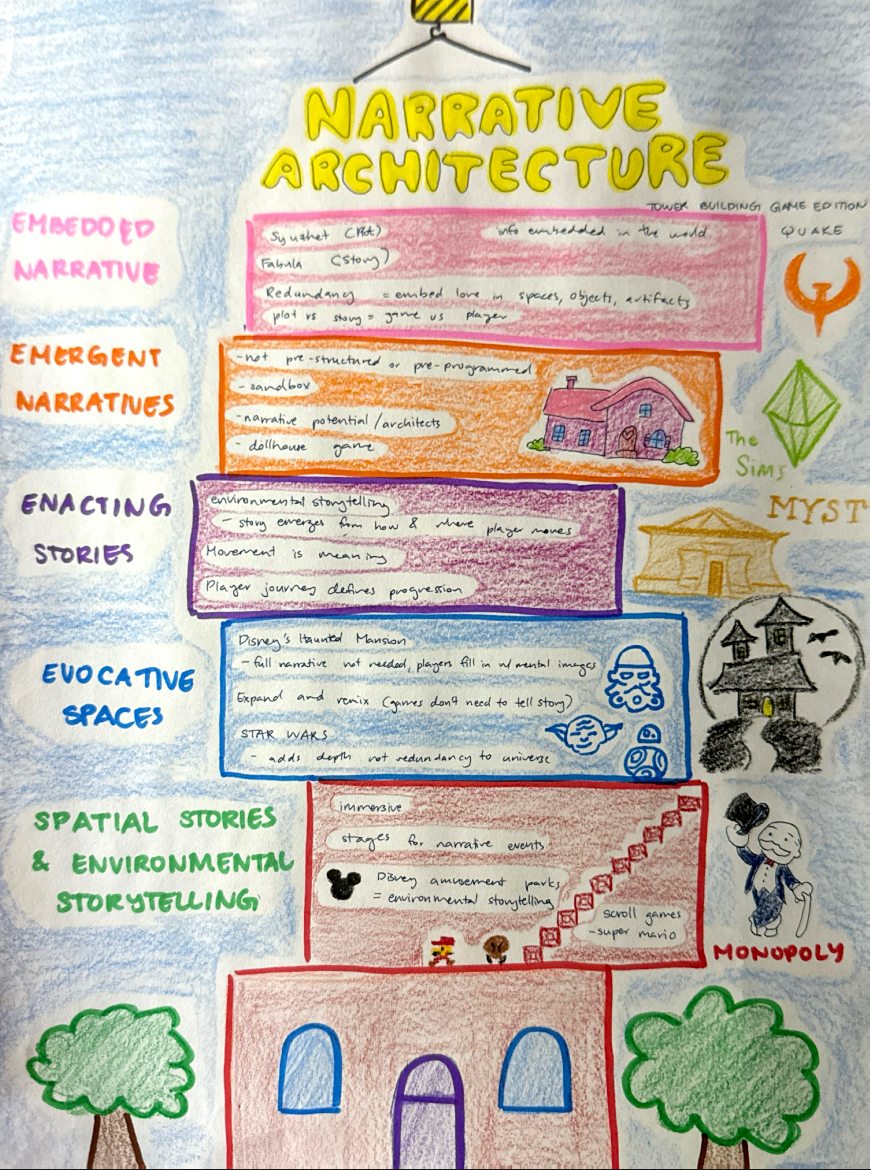 NARRATIVE
ARCHITECTURE
TOWER BUILDING GAME EDITION
EMBEDDED
NARRATIVE
Syuzhet (Plot)
info embedded in the world
Fabula (Story)
Redundancy = embed lore in spaces, objects, artifacts
plot vs story = game vs player
QUAKE
EMERGENT
NARRATIVES
-not pre-structured or pre-programmed
-sandbox
-narrative potential/architects
- dollhouse game
The
Sims
ENACTING
STORIES
environmental storytelling
- story emerges from how & where player moves
Movement is meaning
Player journey defines progression
MYST
EVOCATIVE
SPACES
Disney's Haunted Mansion
- full narrative not needed, players fill in w/mental images
Expand and remix (games don't need to tell story)
STAR WARS
- adds depth not redundancy to universe
SPATIAL STORIES
& ENVIRONMENTAL
STORYTELLING
immersive
stages for narrative events
Disney amusement parks
= environmental storytelling
scroll games
-super mario
MONOPOLY